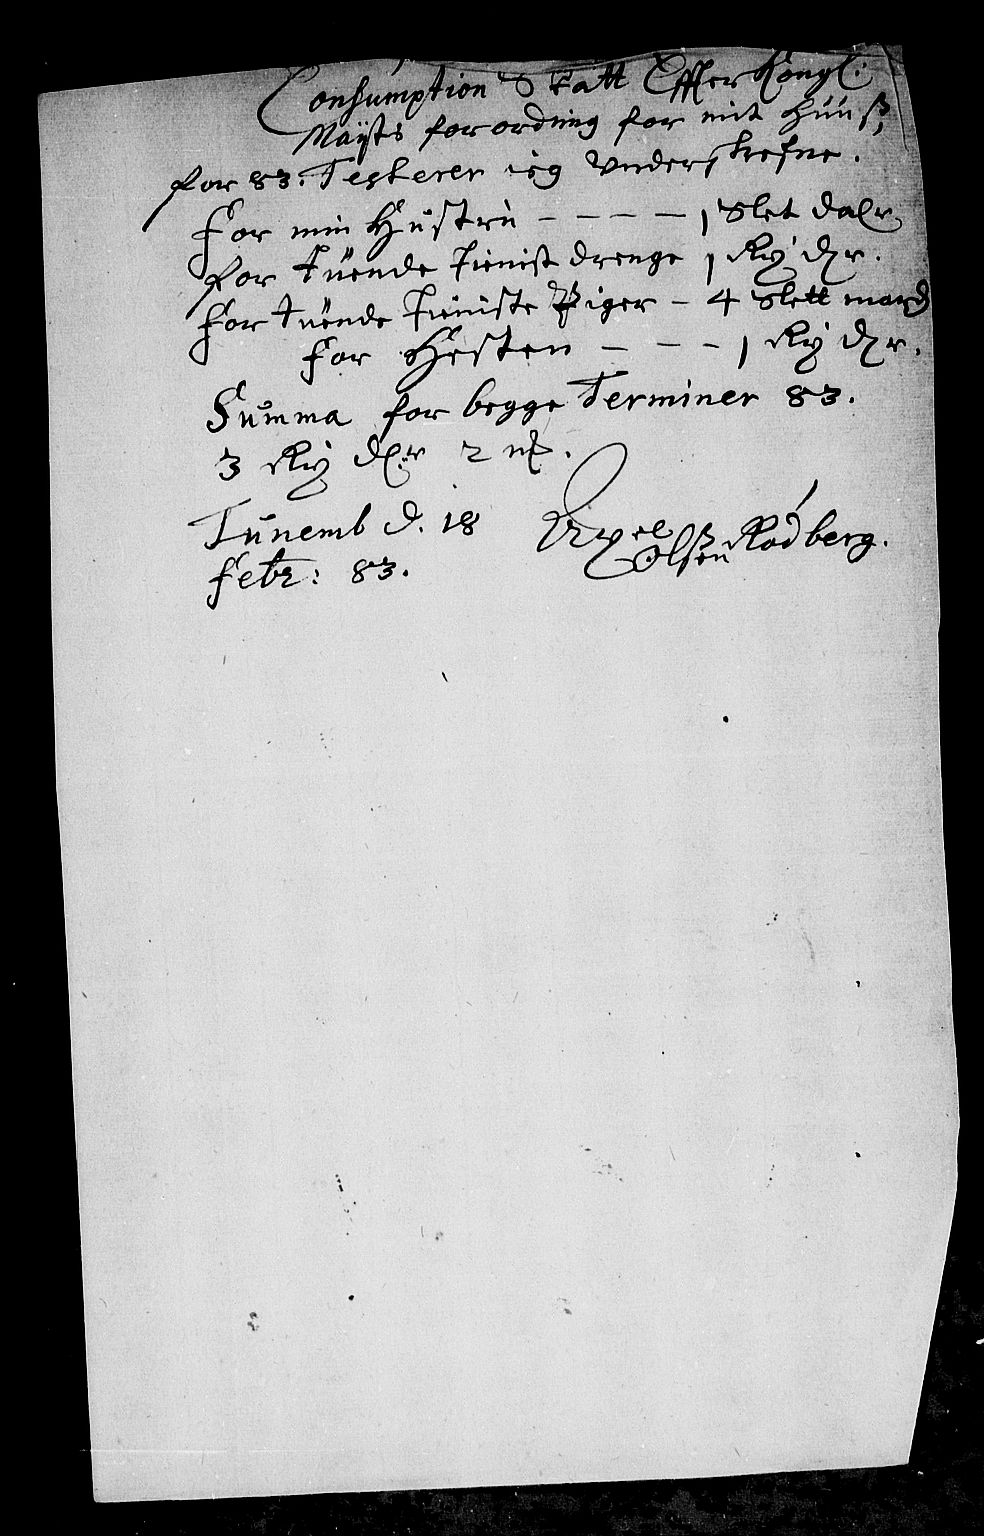 Consumption Skatt Effter Kongl:
Maÿsts forordning for mit Huuß,
for 83. Testerer ieg Underskrefne.
For min Hustru - - - - - 1 Slet dalr
for tuende tienist drenge 1 Rix dlr.
For tuende tieniste Piger - 4 Slett mark
For Hesten - - - 1 Rix dlr.
Summa for begge Terminer 83.
3 Rix dlr 2 mk.
Tunemb d. 18 Axel Olsøn Rodberg.
Febr: 83.